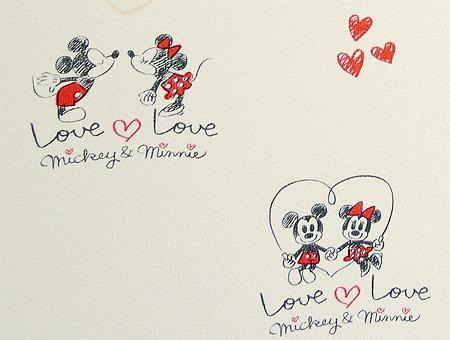 Love Love
Mickey & Minnie
Love Love
Mickey & Minnie